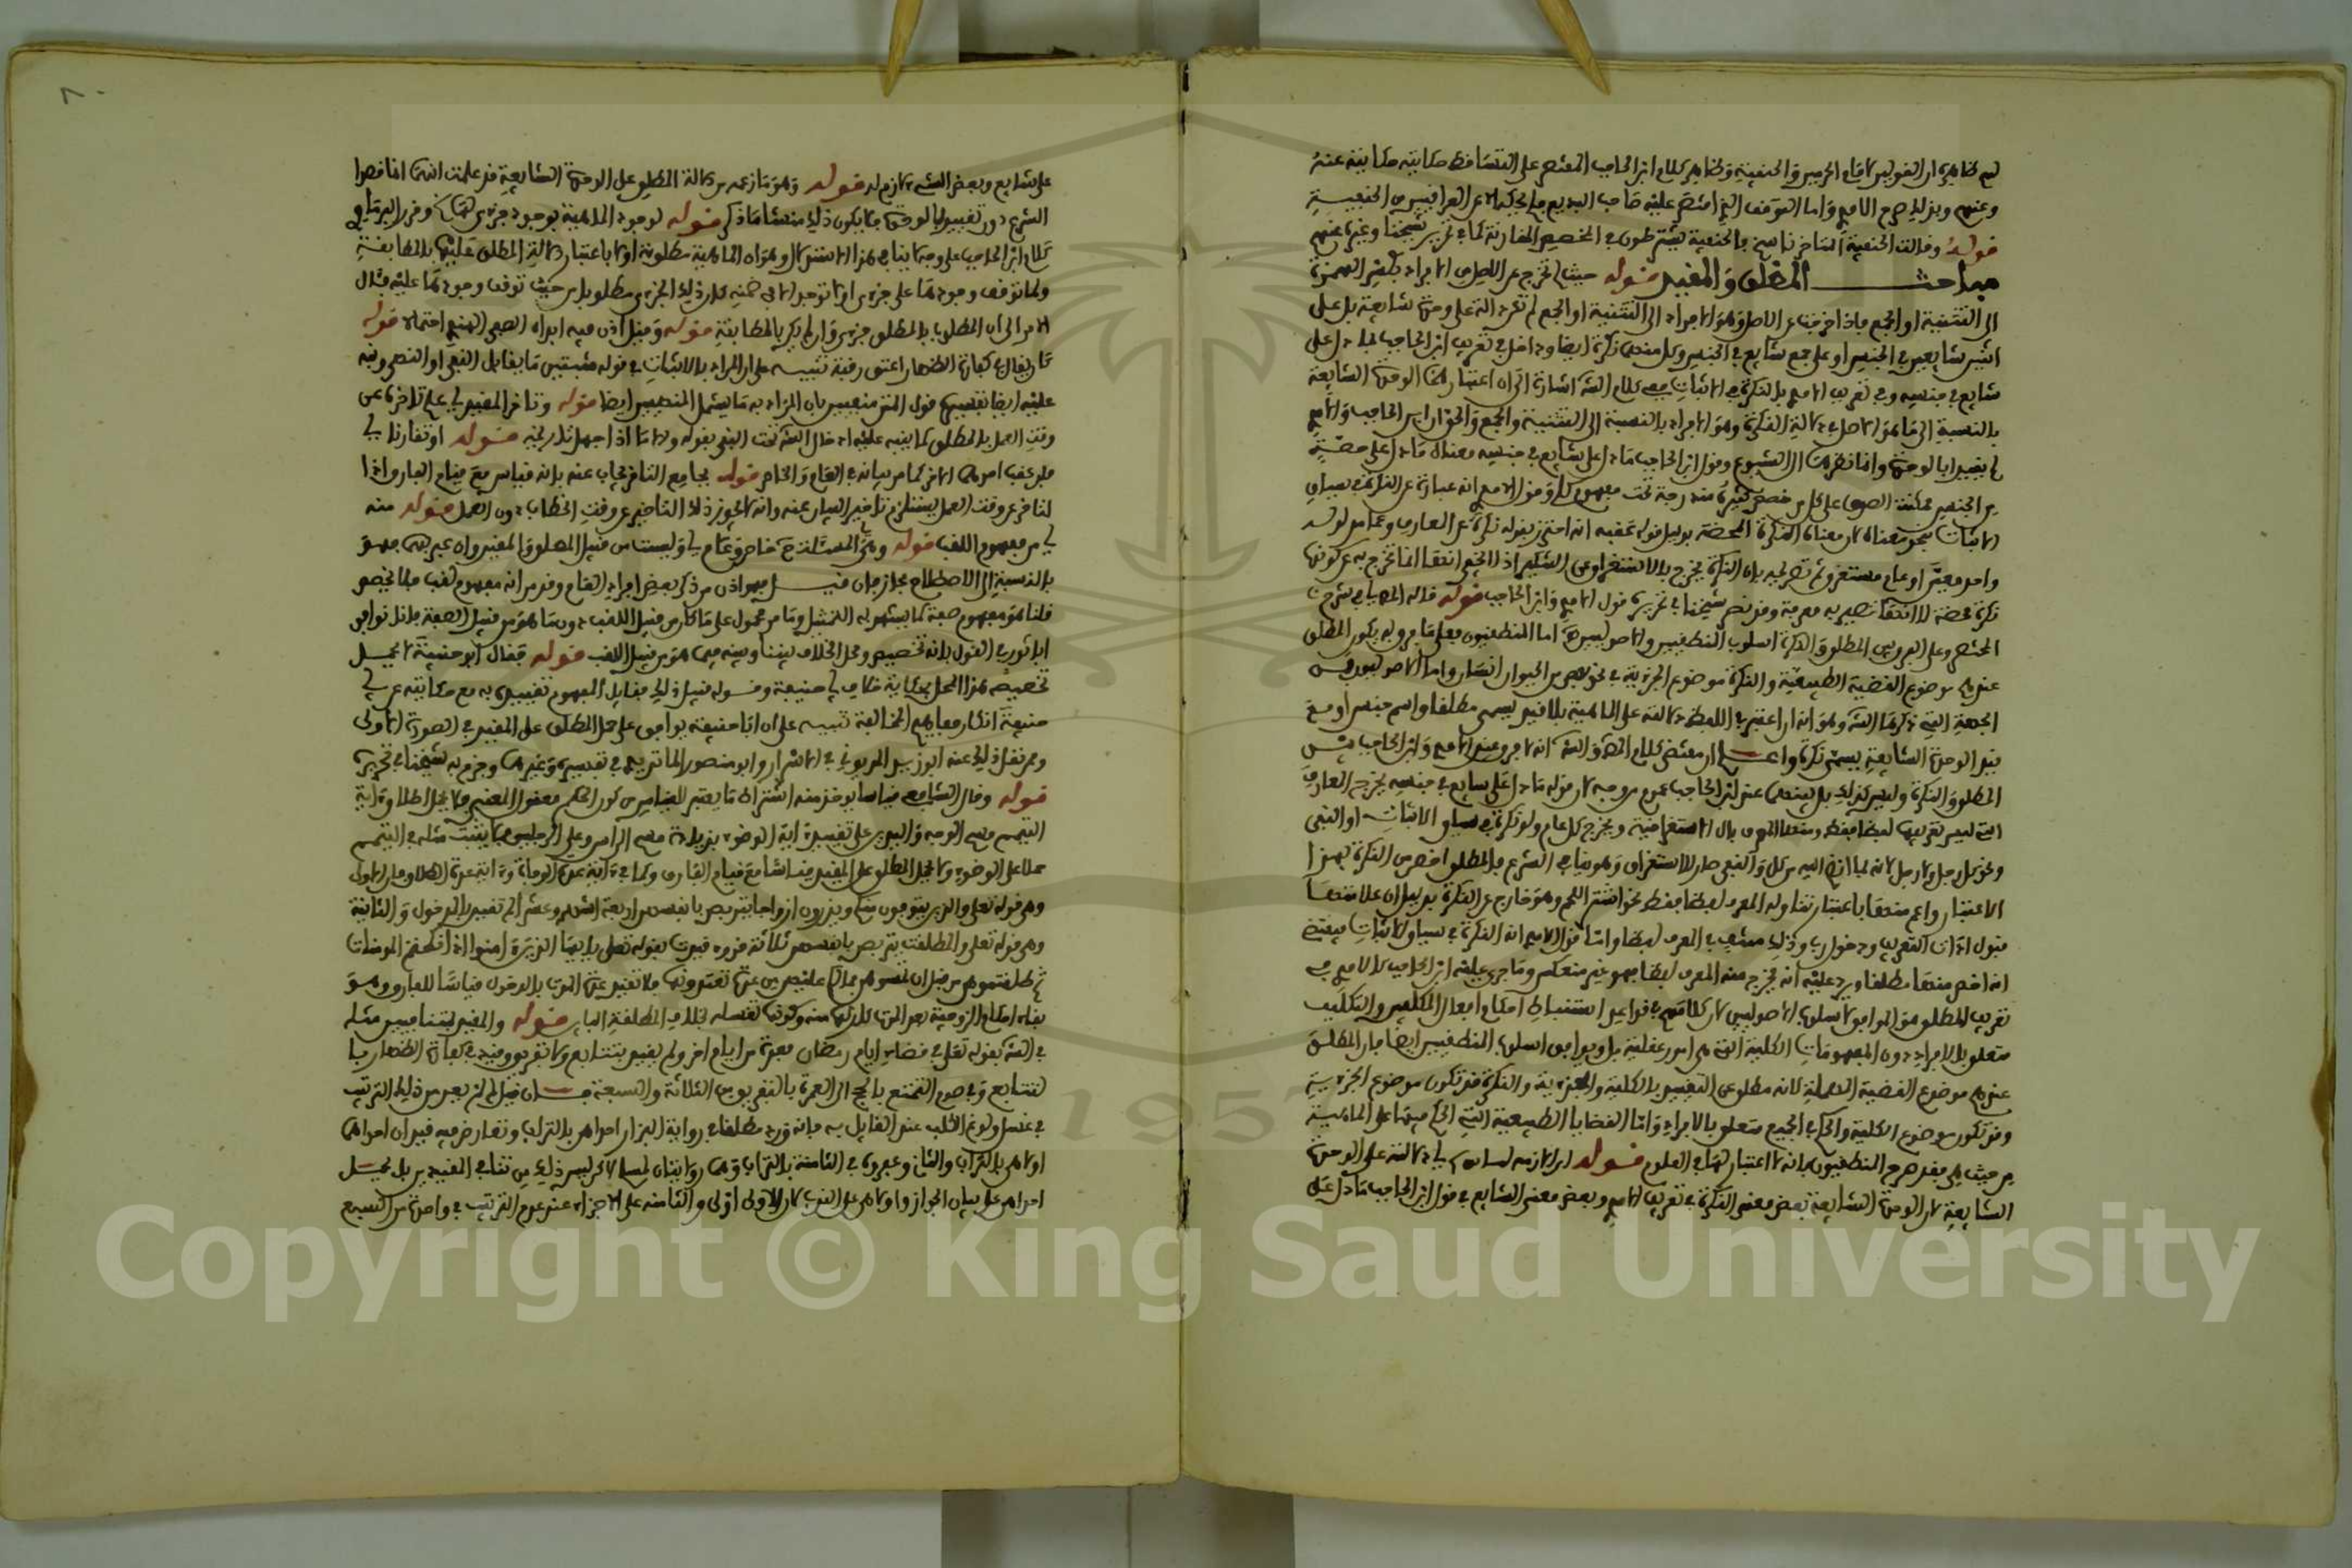 لهم ظاهره ان القولين لامام الحرمين والحنفية وظاهر كلام ابن الحاجب المقتصر على التساقط حكايته حكايته عنه
وعنهم وبذلك صرح الآمدي واما التوقف الذي اقتصر عليه صاحب البديع فلم يحكه الا عن العراقيين من الحنفية
قوله وقالت الحنفية المتاخر ناسخ فالحنفية يشترطون في المخصص المقارنة كما في تحرير شيخنا وغيره عنهم
مباحث المطلق والمقيد قوله حيث لم تخرج عن الاصل من الافراد بكسر الهمزة
الى التثنية او الجمع فاذا خرجنا عن الاصل وهو الافراد الى التثنية او الجمع لم تعد دالة على وحدة شايعة بل على
اثنين شايعين في الجنس او على جمع شايع في الجنس وكل منهما نكرة ايضا داخل في تعريف ابن الحاجب لما دل على
شايع في جنسه وفي تعريف الآمدي بالنكرة في الاثبات ففي كلام الشارح اشارة الى ان اعتبار هذه الوحدة الشايعة
بالنسبة الى ما هو الاصل في دلالة النكرة وهو الافراد بالنسبة الى التثنية والجمع والحق ان ابن الحاجب والآمدي
لم يقيدا بالوحدة وانما نظرهما الى الشيوع وقول ابن الحاجب ما دل على شايع في جنسه معناه ما دل على حصة
من الجنس ممكنة الصدق على كل من حصص كثيرة مندرجة تحت مفهوم كلي وقول الآمدي انه عبارة عن النكرة في سياق
الاثبات نحو معناه لان معناه النكرة المحضة بدليل قوله عقبه انه احترز بقوله نكرة عن المعارف وعما مدلوله
واحد معين او عام مستغرق ثم تصريحه بان النكرة تخرج بالاستغراق عن التنكير
نكرة محضة لا انها تصير به معرفة وقد نص شيخنا في تحريره قول الآمدي وابن الحاجب قوله قاله المصنف في شرح
المختصر وعلى الفرق بين المطلق والنكرة اسلوب المنطقيين والاصوليين اما المنطقيون فعلى ما مر وبه يكون المطلق
عندهم موضوع القضية الطبيعية والنكرة موضوع الجزئية في نحو بعض الحيوان انسان واما الاصوليون فمن
الجهة التي ذكرها الشارح وهو انه ان اعتبر في اللفظ دلالته على الماهية بلا قيد يسمى مطلقا واسم جنس او مع
قيد الوحدة الشايعة يسمى نكرة واعلم ان مقتضى كلام المصنف والشارح انه لا فرق عند الآمدي وابن الحاجب بين
المطلق والنكرة وليس كذلك بل بينهما عند ابن الحاجب عموم من وجه لان قوله ما دل على شايع في جنسه يخرج المعارف
التي ليس تعريفها لفظا فقط ومنها المعرف بال الاستغراقية ويخرج كل عام ولو نكرة في سياق الاثبات او النفي
ونحو كل رجل ولا رجل لانه لما انضم اليه من كل والنفي صار للاستغراق وهو ينافي الشيوع فالمطلق اخص من النكرة بهذا
الاعتبار واعم منها باعتبار تناوله المعرف لفظا فقط نحو اشتر اللحم وهو خارج عن النكرة بدليل ان علامتها
قبول اداة التعريف ودخول رب وذلك منتف في المعرف لفظا واما قول الآمدي انه النكرة في سياق الاثبات فيقتضي
انه اخص منها مطلقا ويرد عليه انه يخرج منه المعرف لفظا فهو غير منعكس وما جرى عليه ابن الحاجب كالآمدي في
تعريف المطلق هو الموافق لاسلوب الاصوليين لان كلامهم في قواعد استنباط احكام افعال المكلفين والتكليف
متعلق بالافراد دون المفهومات الكلية التي هي امور عقلية بل ويوافق اسلوب المنطقيين ايضا فان المطلق
عندهم موضوع القضية المهملة لانه مطلق عن التقييد بالكلية والجزئية والنكرة قد تكون موضوع الجزئية
وقد تكون موضوع الكلية والحكم في الجميع متعلق بالافراد واما القضايا الطبيعية التي الحكم فيها على الماهية
من حيث هي فقد صرح المنطقيون بانه لا اعتبار لها في العلوم قوله اي في دلالته على الوحدة
الشايعة لان الوحدة الشايعة بعض معنى النكرة في تعريف الآمدي وبعض معنى الشايع في قول ابن الحاجب ما دل على
على شايع وبعض الشيء لازم له قوله وهو ما زعمه من دلالة المطلق على الوحدة الشايعة قد علمت انهما انما قصدا
الشيوع دون تقييد بالوحدة فلا يكون ذلك منشا ما ذكر قوله لوجود الماهية بوجود جزئي لها وقرر البرماوي
كلام ابن الحاجب على وجه لا ينافي هذا الاستدلال وهو ان الماهية مطلوبة اولا باعتبار دلالة المطلق عليها بالمطابقة
ولما توقف وجودها على جزئي اذ لا توجد الا في ضمنه كان ذلك الجزئي مطلوبا من حيث توقف وجودها عليه فآل
الامر الى ان المطلوب بالمطلق جزئي وان لم يكن بالمطابقة قوله وقيل اذن فيه ابداء المصنف احتمالا قوله
كان يقال في كفارة الظهار اعتق رقبة تنبيه على ان المراد بالاثبات في قوله مثبتين ما يقابل النفي او النهي ونبه
عليه ايضا بتفسيره قول المتن منفيين بان المراد به ما يشمل المنهيين ايضا قوله وتاخر المقيد اي علم تاخره عن
وقت العمل بالمطلق كما ينبه عليه ادخال الشارح تحت النفي بقوله والا ما اذا جهل تاريخه قوله او تقارنا اي
بان عقب احدهما الآخر كما مر بيانه في العام والخاص قوله بجامع التاخر يجاب عنه بانه قياس مع قيام الفارق اذ
التاخر عن وقت العمل يستلزم تاخير البيان عنه وانه لا يجوز ذلك التاخير عن وقت الخطاب دون العمل قوله منه
اي من مفهوم اللقب قوله وهي اي المسئلة خاص وعام اي وليست من قبيل المطلق والمقيد وان عبر بهما فهو
بالنسبة الى الاصطلاح مجاز فان قيل فهو اذن من ذكر بعض افراد العام وقد مر انه مفهوم لقب فلا يخصص
قلنا هو مفهوم صفة كما يشهد له التمثيل وما مر محمول على ما كان من قبيل اللقب دون ما هو من قبيل الصفة فانا نوافق
ابا ثور في القول بانه تخصيص ومحل الخلاف بيننا وبينه فيما هو من قبيل اللقب قوله فقال ابو حنيفة لا يحمل
تخصيصه هذا المحل بحكاية خلاف ابي حنيفة وقوله قبيل ذلك فقابل المفهوم تقييده به مع حكايته عن ابي
حنيفة انكار مفاهيم المخالفة تنبيه على ان ابا حنيفة يوافق على حمل المطلق على المقيد في الصورة الاولى
وممن نقل ذلك عنه ابو زيد الدبوسي في الاسرار وابو منصور الماتريدي في تفسيره وغيرهما وجزم به شيخنا في تحريره
قوله وقال الشافعي قياسا يؤخذ منه اشتراط ما يعتبر للقياس من كون الحكم معقول المعنى فلا يحمل اطلاق آية
التيمم مسح الوجه واليدين على تقييد آية الوضوء بزيادة مسح الراس وغسل الرجلين فلا يثبت مثله في التيمم
حملا على الوضوء ولا يحمل المطلق على المقيد قياسا مع قيام الفارق كما في آية عدة الوفاة وآية عدة الطلاق فان الاولى
وهي قوله تعالى والذين يتوفون منكم ويذرون ازواجا يتربصن بانفسهن اربعة اشهر وعشرا لم تقيد بالدخول والثانية
وهي قوله تعالى والمطلقات يتربصن بانفسهن ثلاثة قروء قيدت بقوله تعالى يا ايها الذين آمنوا اذا نكحتم المؤمنات
ثم طلقتموهن من قبل ان تمسوهن فما لكم عليهن من عدة تعتدونها فلا تقيد عدة الموت بالدخول قياسا للفارق وهو
بقاء احكام الزوجية بعد الموت كارثها منه وكونها تغسله بخلاف المطلقة البائن قوله والمقيد بمتنافيين مثله
في الشارح بقوله تعالى في قضاء ايام رمضان فعدة من ايام اخر ولم يقيد بتتابع ولا تفريق وقيد في كفارة الظهار با
لتتابع وفي صوم التمتع بالحج الى العمرة بالتفريق بين الثلاثة والسبعة فان قيل لم لم يعد من ذلك التتريب
في غسل ولوغ الكلب عند القايل به فانه ورد مطلقا في رواية البزار احداهن بالتراب وتعارض فيه قيدان احدهما
اولاهن بالتراب والثاني وعفروه في الثامنة بالتراب وهما روايتان لمسلم لكن ليس ذلك من تنافي القيدين بل يحمل
احداهن على بيان الجواز واولاهن على الندب لان الاولى اولى والثامنة على الاجزاء عند عدم التتريب في واحدة من السبع